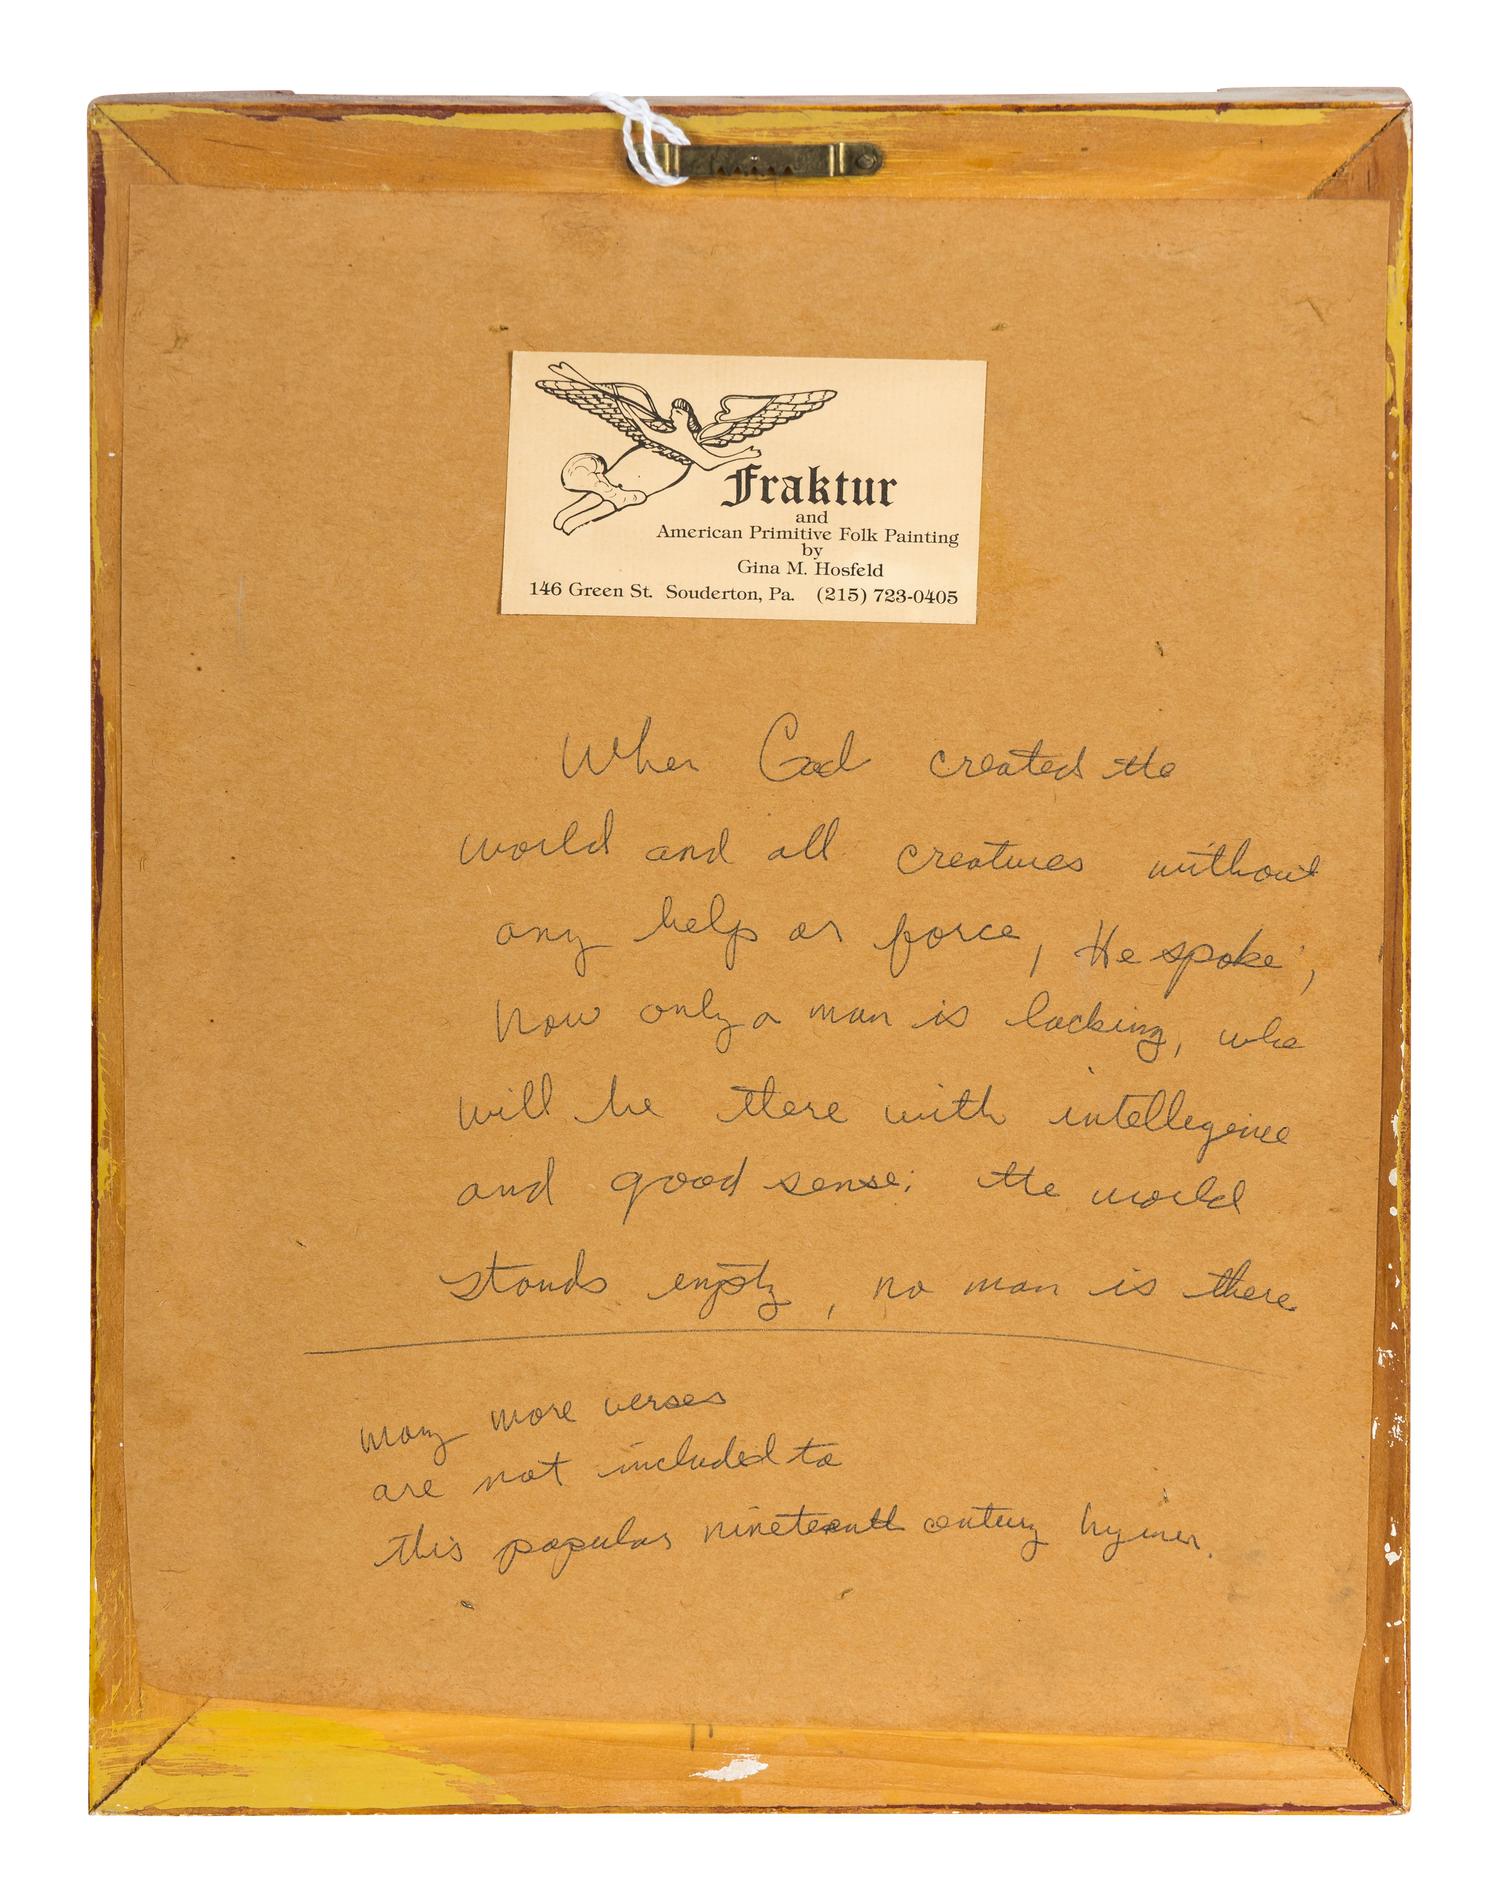 Fraktur
and
American Primitive Folk Painting
by
Gina M. Hosfeld
146 Green St. Souderton, Pa. (215) 723-0405
When God created the
world and all creatures without
any help or force, He spoke;
now only a man is lacking, who
will be there with intellegence
and good sense; the world
stands empty, no man is there
many more verses
are not included to
this popular nineteenth century hymn.